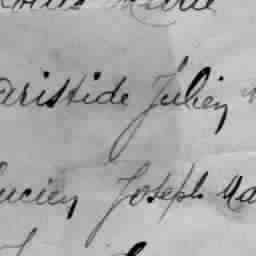 Marie
Aristide Julien
Lucien Joseph Ma